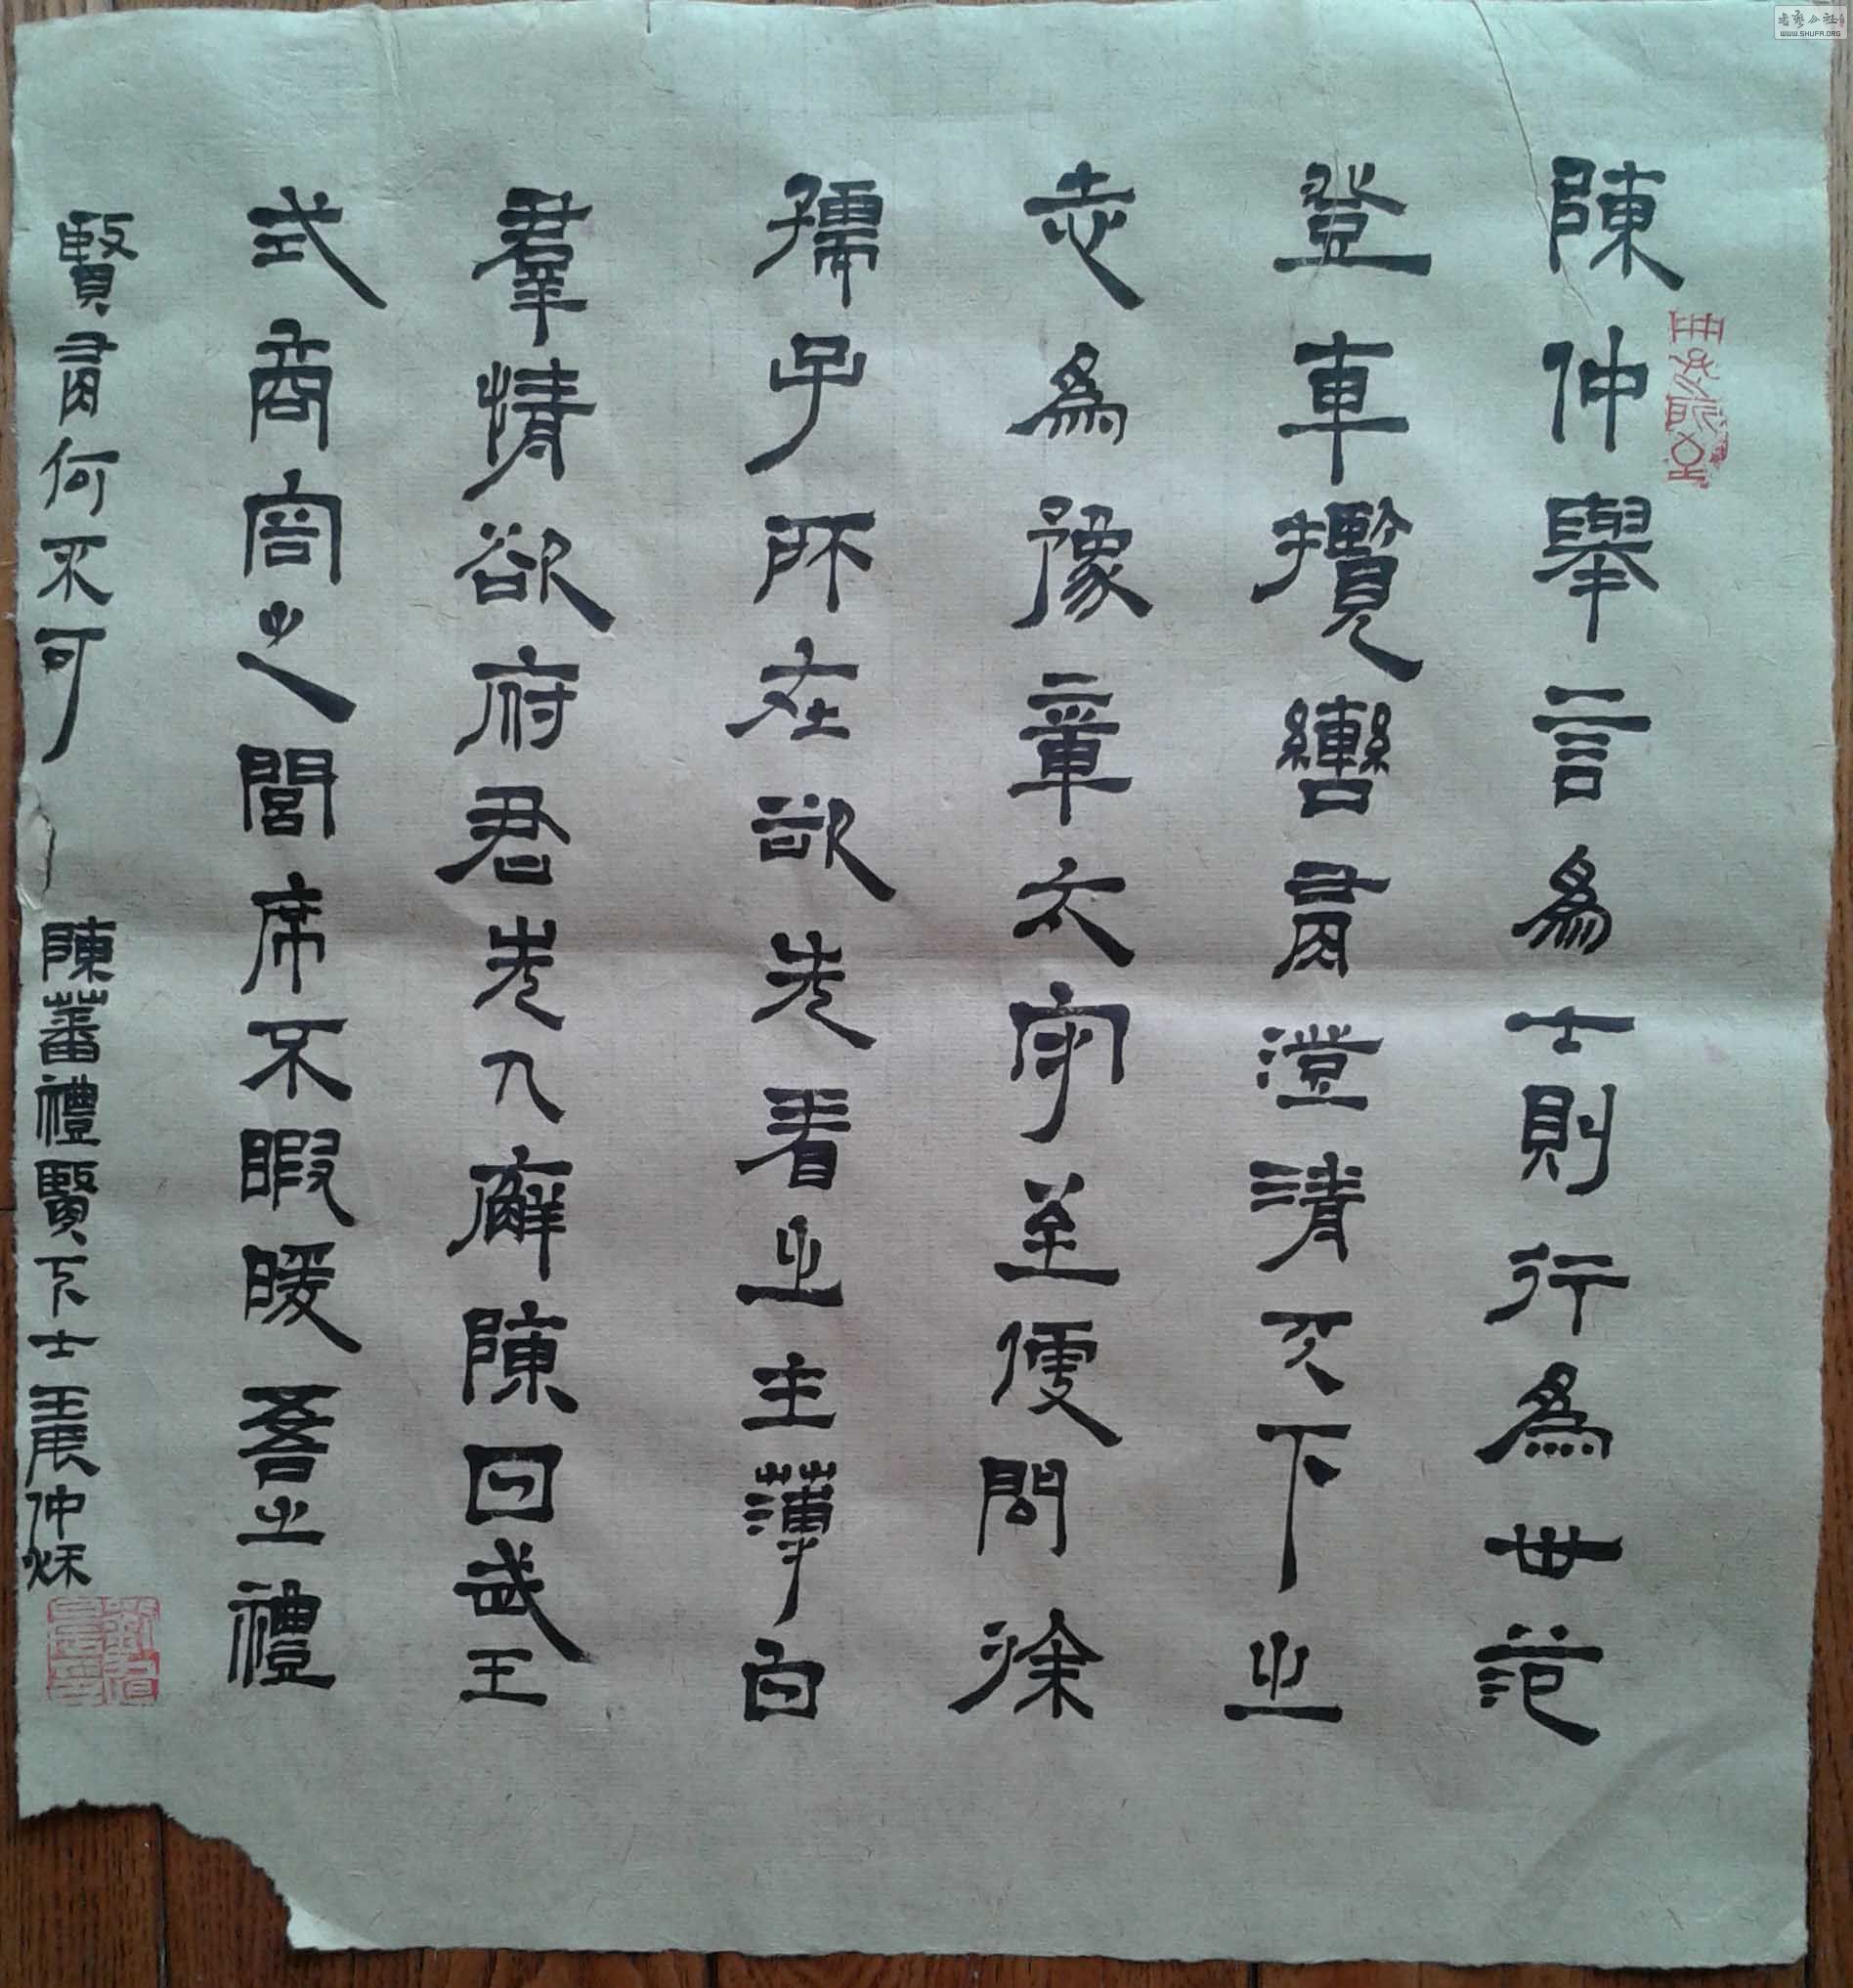 陳仲舉言為士則行為世范
登車攬轡有澄清天下之
志為豫章太守至便問徐
孺子所在欲先看之主薄白
羣情欲府君先入廨陳曰武王
式商容之閭席不暇暖吾之禮
賢有何不可 陳蕃禮賢下士 壬辰仲秋
书艺公社
WWW.SHUFA.ORG